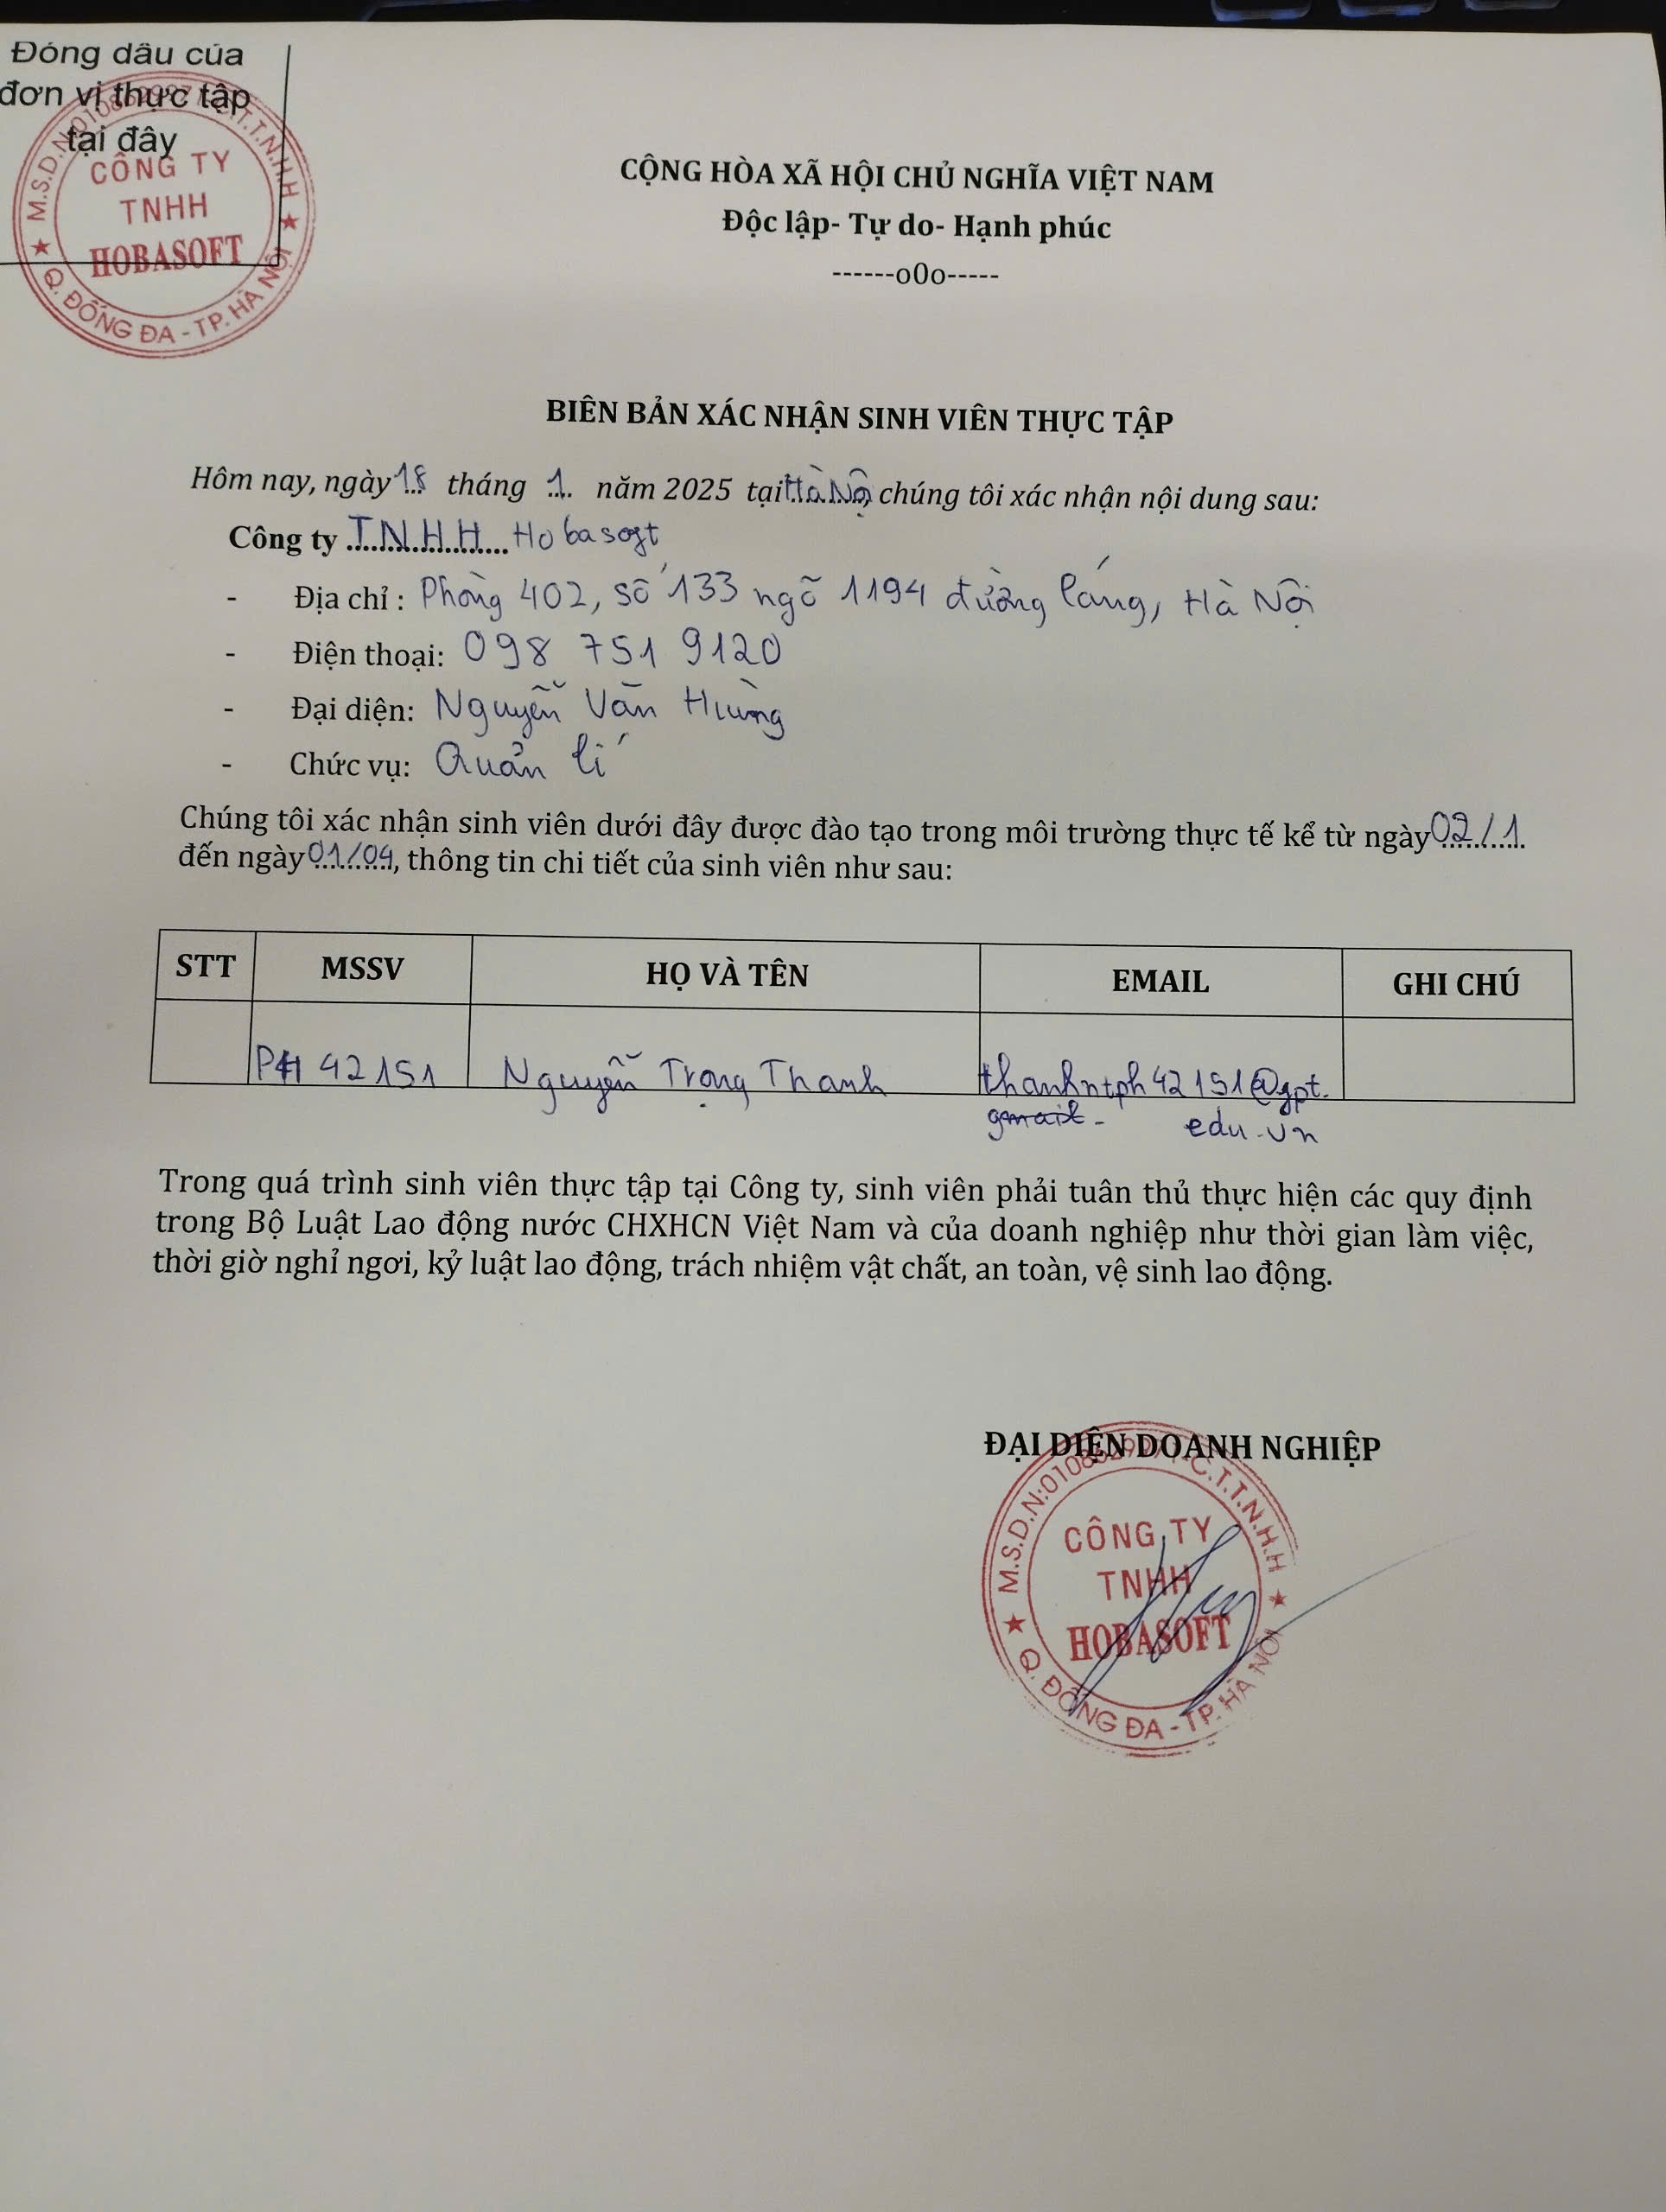 Đóng dấu của
đơn vị thực tập
tại đây
CÔNG TY
TNHH
HOBASOFT
Q. ĐỐNG ĐA - TP. HÀ NỘI
CỘNG HÒA XÃ HỘI CHỦ NGHĨA VIỆT NAM
Độc lập- Tự do- Hạnh phúc
------o0o-----
BIÊN BẢN XÁC NHẬN SINH VIÊN THỰC TẬP
Hôm nay, ngày 18 tháng 1 năm 2025 tại Hà Nội, chúng tôi xác nhận nội dung sau:
Công ty T.N.H.H Hobasoft
- Địa chỉ : Phòng 402, số 133 ngõ 1194 đường láng, Hà Nội
- Điện thoại: 098 751 9120
- Đại diện: Nguyễn Văn Hường
- Chức vụ: Quản lí
Chúng tôi xác nhận sinh viên dưới đây được đào tạo trong môi trường thực tế kể từ ngày 02/1
đến ngày 01/04, thông tin chi tiết của sinh viên như sau:
STT MSSV HỌ VÀ TÊN EMAIL GHI CHÚ
PH 42151 Nguyễn Trọng Thanh thanhntph42151@gpt.
gmail. edu.vn
Trong quá trình sinh viên thực tập tại Công ty, sinh viên phải tuân thủ thực hiện các quy định
trong Bộ Luật Lao động nước CHXHCN Việt Nam và của doanh nghiệp như thời gian làm việc,
thời giờ nghỉ ngơi, kỷ luật lao động, trách nhiệm vật chất, an toàn, vệ sinh lao động.
ĐẠI DIỆN DOANH NGHIỆP
C.T.T.N.H.H
CÔNG TY
TNHH
HOBASOFT
Q. ĐỐNG ĐA - TP. HÀ NỘI